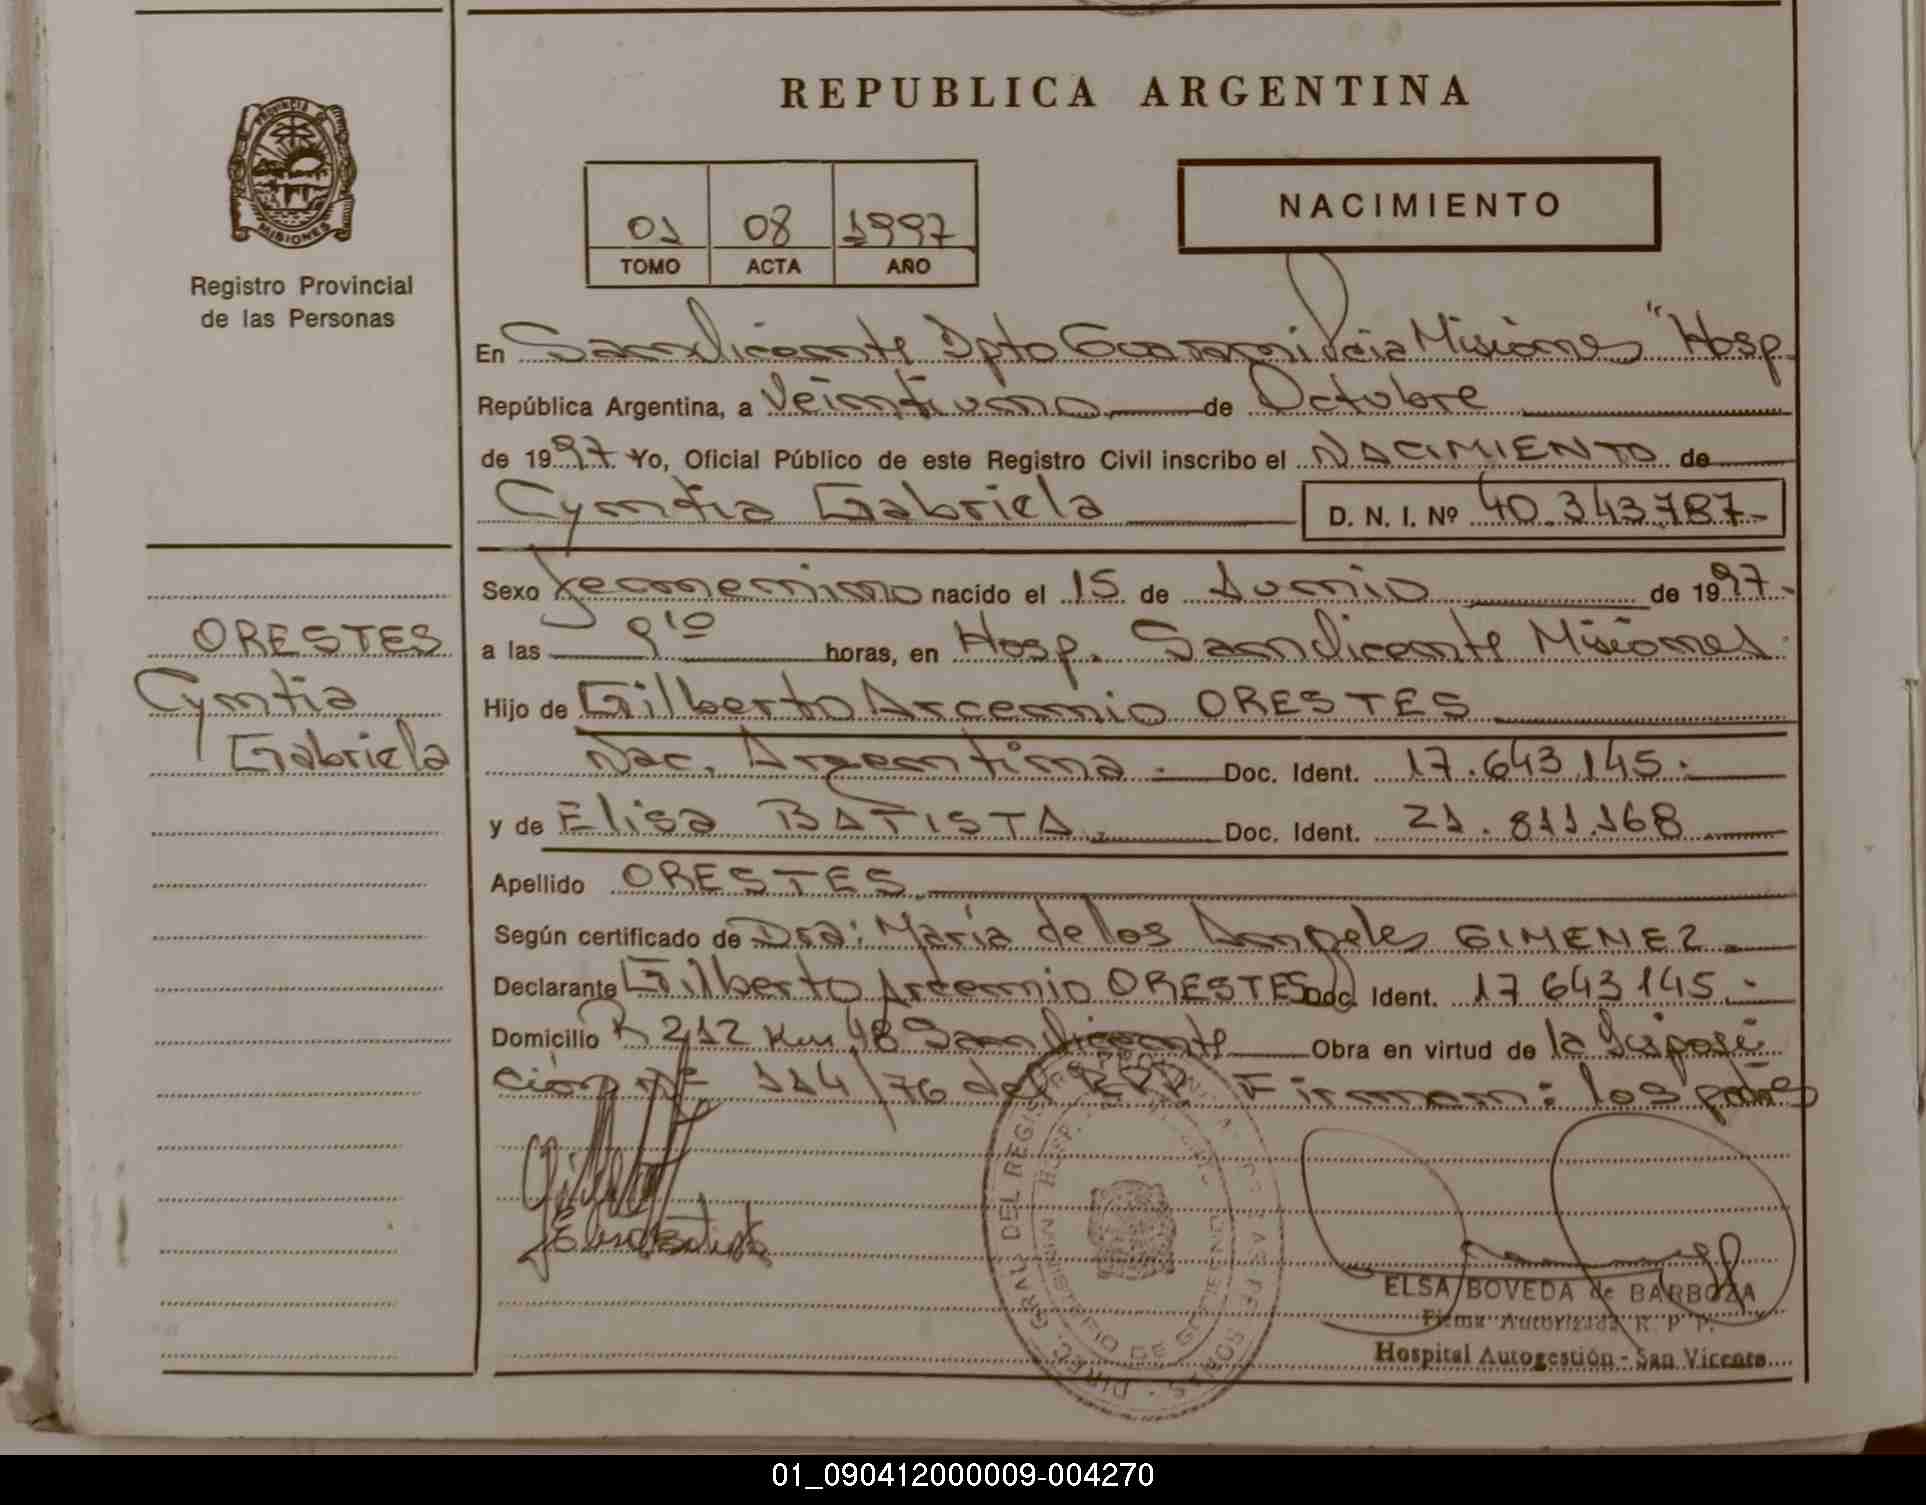 REPUBLICA ARGENTINA
PROVINCIA DE MISIONES
Registro Provincial
de las Personas
01 08 1997
TOMO ACTA AÑO
NACIMIENTO
En San Vicente Dpto Guarani Pcia Misiones "Hosp.
República Argentina, a Veintiuno de Octubre
de 1997 Yo, Oficial Público de este Registro Civil inscribo el NACIMIENTO de
Cyntia Gabriela D. N. I. Nº 40.343.787-
Sexo femenino nacido el 15 de Junio de 1997.-
a las 9 10 horas, en Hosp. San Vicente Misiones.
Hijo de Gilberto Arcenio ORESTES
Nac. Argentina. Doc. Ident. 17.643.145.
y de Elisa BATISTA. Doc. Ident. 21.811.168
Apellido ORESTES
Según certificado de Dra: María de los Angeles GIMENEZ
Declarante Gilberto Arcenio ORESTES Doc. Ident. 17 643 145.-
Domicilio R 212 Km 48 San Vicente Obra en virtud de la Disposi
ción Nº 114/76 del Firman: los padres
ORESTES
Cyntia
Gabriela
Elisa Batista
DIREC. GRAL. DEL REGIS
ELSA BOVEDA de BARBOZA
Firma Autorizada R. P. P.
Hospital Autogestión - San Vicente
01_090412000009-004270